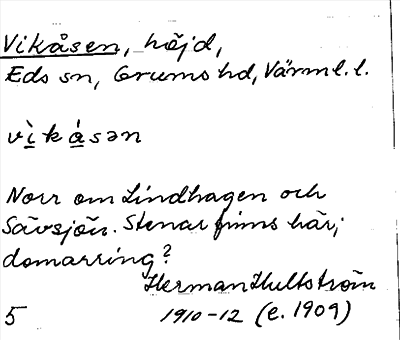 Vikåsen, höjd,
Eds sn, Grums hd, Värml. l.
vìkásən
Norr om Lindhagen och
Sävsjön. Stenar finns här;
domarring?
Herman Hultström
1910-12 (e. 1909)
5